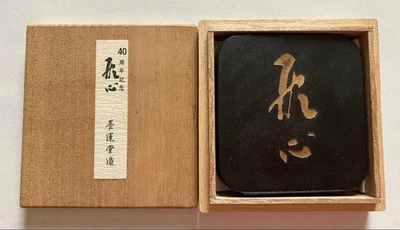 40
周年記念
心
墨運堂造
心